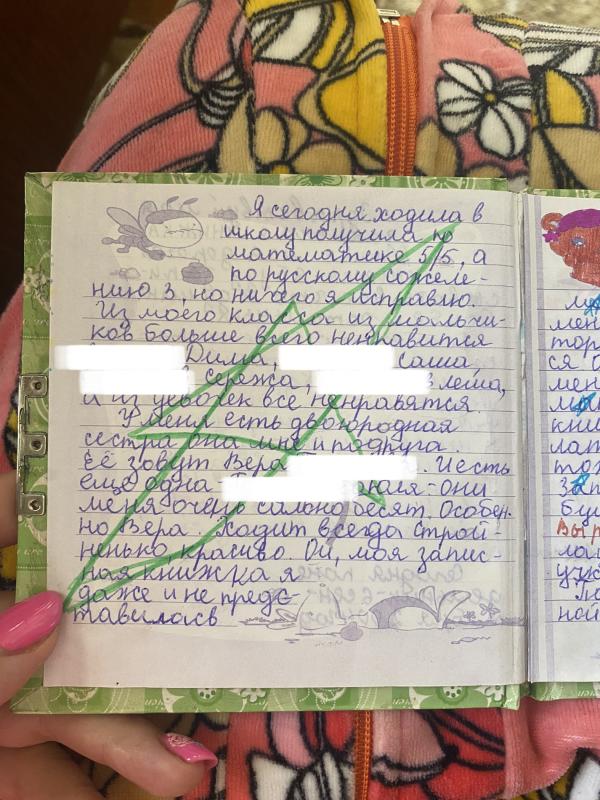 Я сегодня ходила в
школу получила по
математике 5/5, а
по русскому сожеле-
нию 3, но ничего я исправлю.
Из моего класса из мальчи-
ков больше всего ненравится
Дима, Саша
Сережа, Леша,
и из девочек все не нравятся.
У меня есть двоюродная
сестра она мне и подруга.
Её зовут Вера . И есть
ещё одна Юля - они
меня очень сально бесят. Особен-
но Вера. Ходит всегда строй-
ненько, красиво. Ой, моя запис-
ная книжка я
даже и не предс-
тавилась